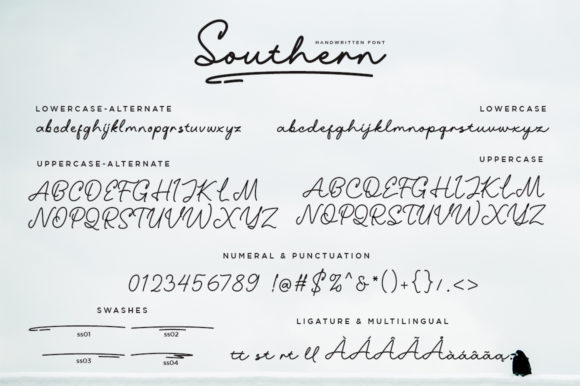 Southern
HANDWRITTEN FONT
LOWERCASE-ALTERNATE
abcdefghijklmnopqrstuvwxyz
LOWERCASE
abcdefghijklmnopqrstuvwxyz
UPPERCASE-ALTERNATE
ABCDEFGHIJKLM
NOPQRSTUVWXYZ
UPPERCASE
ABCDEFGHIJKLM
NOPQRSTUVWXYZ
NUMERAL & PUNCTUATION
0123456789 !@#$%^&*()+{}/.<>
SWASHES
ss01 ss02
ss03 ss04
LIGATURE & MULTILINGUAL
tt st rt ll ÀÁÂÃÄÅàáâãäą